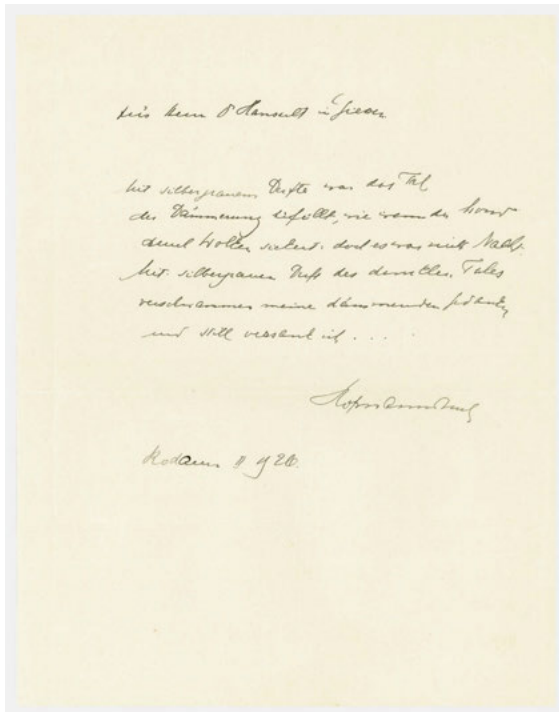 Für Herrn Dr Hanselt in Giessen
Mit silbergrauem Dufte war das Tal
der Dämmerung erfüllt, wie wenn der Mond
durch Wolken sickert. doch es war nicht Nacht.
Mit silbergrauem Duft des dunklen Tales
verschwammen meine dämmernden Gedanken
und still versank ich . . .
Hofmannsthal
Rodaun II 926.